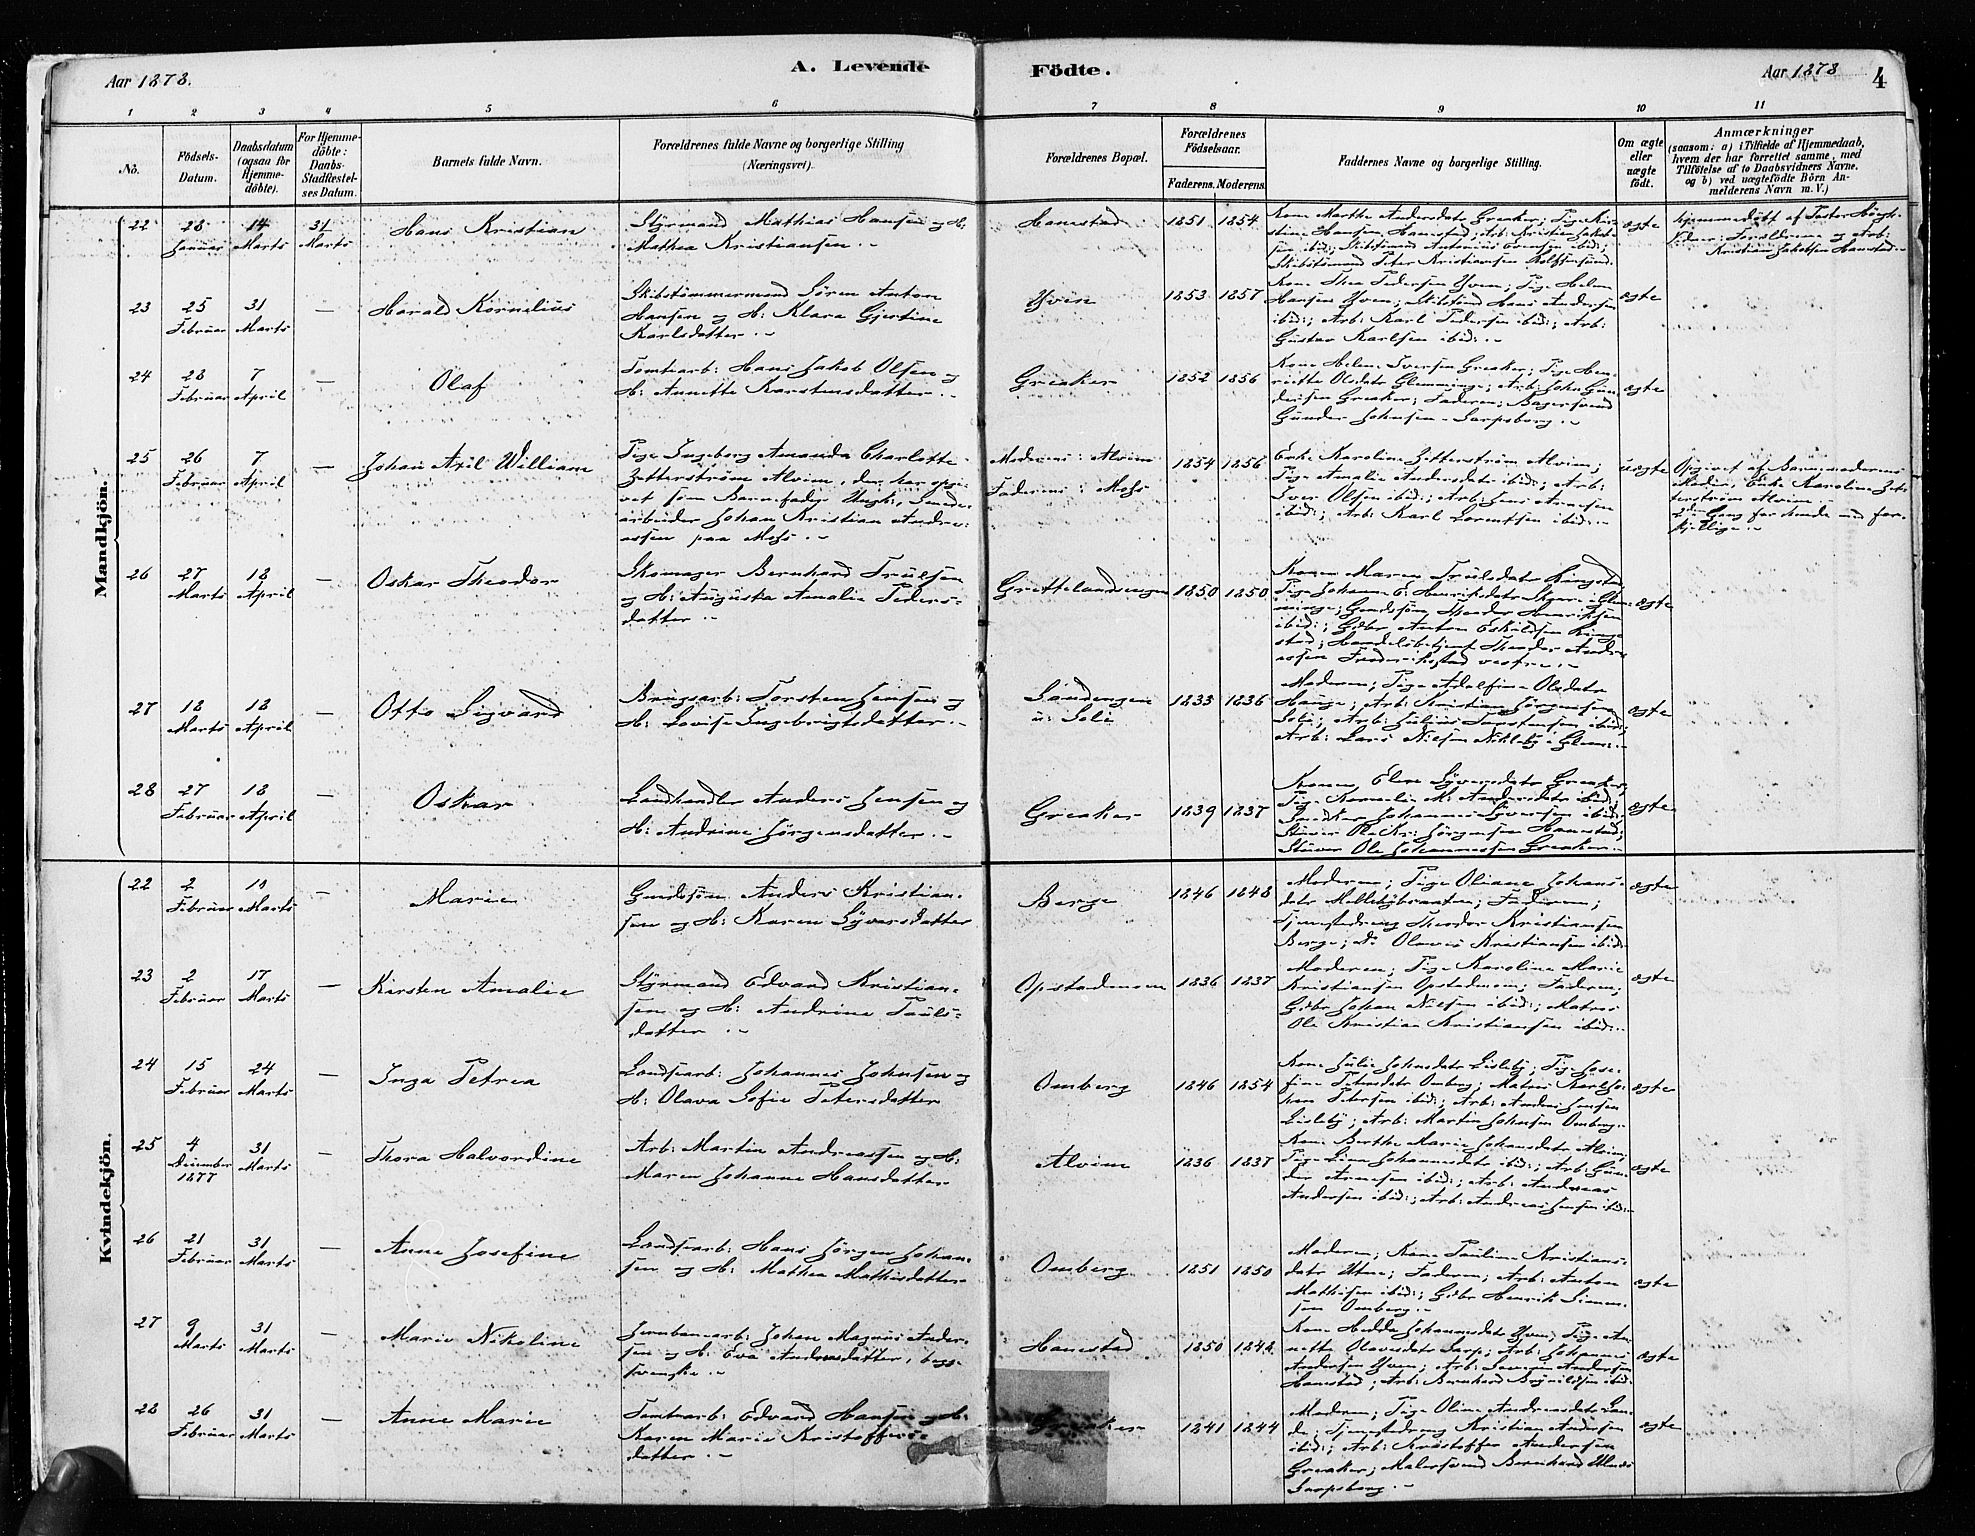 Aar 1878.
A. Levende Födte.
Aar 1878
4
1 2 3 4 5 6 7 8 9 10 11
No.
Födsels-Datum.
Daabsdatum (ogsaa for Hjemme-döbte).
For Hjemme-döbte: Daabs-Stadfæstelses Datum.
Barnets fulde Navn.
Forældrenes fulde Navne og borgerlige Stilling
(Næringsvei).
Forældrenes Bopæl.
Forældrenes Födselsaar.
Faderens. Moderens.
Faddernes Navne og borgerlige Stilling.
Om ægte eller uægte födt.
Anmærkninger
(saasom: a) i Tilfælde af Hjemmedaab,
hvem der har forrettet samme, med
Tilföielse af to Daabsvidners Navne.
og b) ved uægtefödte Börn An-
melderens Navn m. V.)
Mandkjön.
22 28 Januar 14 Marts 31 Marts Hans Kristian
Styrmand Mathias Hansen og H:
Mathea Kristiansen.
Hanestad 1851 1854
Kone Marthe Andersdatr Greaker; Pige Kri-
stine Hansen, Hanestad; Arb: Kristian Jakob-
sen ibid; Skibstømmand Antonius Evensen ibid;
Skibstømmand Peter Kristiansen
ægte
Hjemmedøbt af Pastor Høgh.
Vidner: Forældrene og Arb:
Kristian Jakobsen Hanestad.
23 25 Februar 31 Marts — Harald Kornelius
Skibstømmermand Søren Anton
Hansen og H: Klara Gjertine
Karlsdatter.
Yven 1853 1857
Kone Thea Pedersen Yven; Pige Helene
Hansen Yven; Hans Andersen
ibid; Arb: Karl Pedersen ibid; Arb:
Gustav Karlsen ibid.
ægte
24 28 Februar 7 April — Olaf
Tomtearb: Hans Jakob Olsen og
H: Annette Karstensdatter.
Greaker 1852 1856
Kone Helene Iversen Greaker; Pige Hen-
riette Olsdatr Glemminge; Arb: John Gun-
dersen Greaker; Faderen; Bagersvend
Gunder Johnsen Sarpsborg.
ægte
25 26 Februar 7 April — Johan Axil William
Pige Ingeborg Amanda Charlotte
Zetterstrøm Alvim, der har opgi-
vet som Barnefader Ungk:
arbeider Johan Kristian Andre-
assen paa Moss.
Moderens: Alvim
Faderens: Moss
1854 1856
Enke Karoline Zitterstrøm Alvim;
Pige Amalie Andersdatr ibid; Arb:
Iver Olsen ibid; Arb: Jens Arnesen
ibid; Arb: Karl Lorentsen ibid.
uægte
Opgivet af Barnemoderens
Moder, Enke Karoline Zet-
terstrøm Alvim.
2den Gang for hende med for-
skjellige.
26 27 Marts 18 April — Oskar Theodor
Skomager Bernhard Trulsen
og H: Augusta Amalie Peders-
datter.
1850 1850
Konen Maren Trulsdatr Ringstad
Pige Johanne E. Henriksdatr i Glem-
minge; Gaardssøn Theodor Henriksen
ibid; Gdbr Anton Eskildsen Ring-
stad; Handelsbetjent Theodor Andre-
assen Frederikstad vestre.
ægte
27 18 Marts 18 April — Otto Sigvard
Brugsarb: Torsten Jensen og
H: Lovise Ingebrigtsdatter.
Sandengen
u: Soli
1833 1836
Moderen; Pige Adolfine Olsdatr
Hauge; Arb: Kristian Jørgensen
Soli; Arb: Julius Torstensen ibid;
Arb: Lars Nilsen i Glem:
ægte
28 27 Februar 18 April — Oskar
Landhandler Anders Jensen og
H: Andrine Jørgensdatter.
Greaker 1839 1837
Konen Elen Syversdatr Greaker;
Pige Kornelia M. Andersdatr ibid;
Snedker Johannes Syversen ibid;
Stuver Ole Kr: Jørgensen Hanestad;
Stuver Ole Johannessen Greaker.
ægte
Kvindekjön.
22 2 Februar 10 Marts — Marie
Gaardsøn Anders Kristian-
sen og H: Karen Syversdatter
Berge 1846 1848
Moderen; Pige Oliane Johans-
datr; Faderen;
Tjenestedreng Theodor Kristiansen
Berge; Do Olavus Kristiansen ibid
ægte
23 2 Februar 17 Marts — Kirsten Amalie
Styrmand Edvard Kristian-
sen og H: Andrine Pauls-
datter.
Opstadmoen 1836 1837
Moderen; Pige Karoline Marie
Kristiansen Opstadmoen; Faderen;
Gdbr Johan Nilsen ibid; Matros
Ole Kristian Kristiansen ibid.
ægte
24 15 Februar 24 Marts — Inga Petrea
Landsarb: Johannes Johnsen og
H: Olava Sofie Petersdatter
Omberg 1846 1854
Kone Julie Johnsdatr Lisleby; Pige Jose-
fine Petersdatr Omberg; Matros Karl Jo-
han Petersen ibid; Arb: Anders Jensen
Lisleby; Arb: Martin Johnsen Omberg.
ægte
25 4 December 1877 31 Marts — Thora Halvordine
Arb: Martin Andreassen og H:
Maren Johanne Hansdatter
Alvim 1836 1837
Kone Berthe Marie Johansdatr Alvim;
Pige Lina Johannesdatr ibid; Arb: Gun-
der Arnesen ibid; Arb: Andreas
Andersen ibid; Arb: Andreas Jensen ibid.
ægte
26 21 Februar 31 Marts — Anne Josefine
Landsarb: Hans Jørgen Johan-
sen og H: Mathea Mathisdatter
Omberg 1851 1850
Moderen; Kone Pauline Kristians-
datr Utne; Faderen; Arb: Anton
Mathisen ibid; Gdbr Henrik Simon-
sen Omberg.
ægte
27 9 Marts 31 Marts — Marie Nikoline
Jernbanearb: Johan Magnus Ander-
sen og H: Eva Andreasdatter, begge
svenske.
Hanestad 1850 1842
Kone Hedda Johannesdatr Yven; Pige An-
nette Olavesdatr Sarp; Arb: Johannes
Andersen Yven; Arb: Severin Andersen
Hanestad; Arb: Bernhard ibid.
ægte
28 26 Februar 31 Marts — Anne Marie
Tomtearb: Edvard Hansen og H:
Karen Marie Kristoffers-
datter.
Greaker 1841 1844
Moderen; Pige Oline Andreasdatr Lan-
de; Tjenestedreng Kristian Andersen
ibid; Arb: Kristoffer Andersen
Greaker; Malersvend Bernhard
Sarpsborg.
ægte